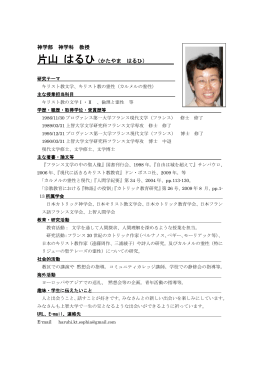 神学部 神学科 教授
片山 はるひ（かたやま はるひ）
研究テーマ
キリスト教文学、キリスト教の霊性（カルメルの霊性）
主な授業担当科目
キリスト教の文学Ⅰ・Ⅱ 、倫理と霊性 等
学歴・職歴・取得学位・受賞歴等
1980/11/30 プロヴァンス第一大学フランス現代文学（フランス） 修士 修了
1989/03/31 上智大学文学研究科フランス文学専攻 修士 修了
1989/10/31 プロヴァンス第一大学フランス現代文学（フランス） 博士 修了
1990/03/31 上智大学文学研究科フランス文学専攻 博士 中退
文学修士、文学博士、文学博士
主な著書・論文等
『フランス文学の中の聖人像』国書刊行会、1998 年、『自由は城を超えて』サンパウロ、
2006 年、『現代に活きるキリスト教教育』ドン・ボスコ社、2009 年
「カルメルの霊性と現代」『人間学紀要』第 34 号、2004 年、pp.113-130、
「宗教教育における『物語』の役割」『カトリック教育研究』第 26 号、2009 年 8 月、pp.1-
15 所属学会
日本カトリック神学会、日本フランス語フランス文学会、日本キリスト教文学会、日本フラン
ス語フランス文学会、上智人間学会
教育・研究活動
教育活動： 文学を通して人間観、人間理解を深めるような授業を担当。
研究活動： フランス 20 世紀のカトリック作家（ベルナノス、ペギー、モーリアック等）、
日本のキリスト教作家（遠藤周作、三浦綾子）や詩人の研究、及びカルメルの霊性（特に
リジューの聖テレーズの霊性）についての研究。
社会的活動
教区での講演や黙想会の指導、コミュニティカレッジ講師、学校での静修会の指導等。
海外活動
ヨーロッパやアジアでの巡礼、黙想会等の企画、青年活動の指導等。
趣味・学生に伝えたいこと
人と出会うこと、話すことが好きです。みなさんとの新しい出会いを楽しみにしています。
みなさんも上智大学で一生の宝となるような出会いができるように祈っています。
URL、E-mail、連絡先
E-mail haruhi.kt.sophia@gmail.com